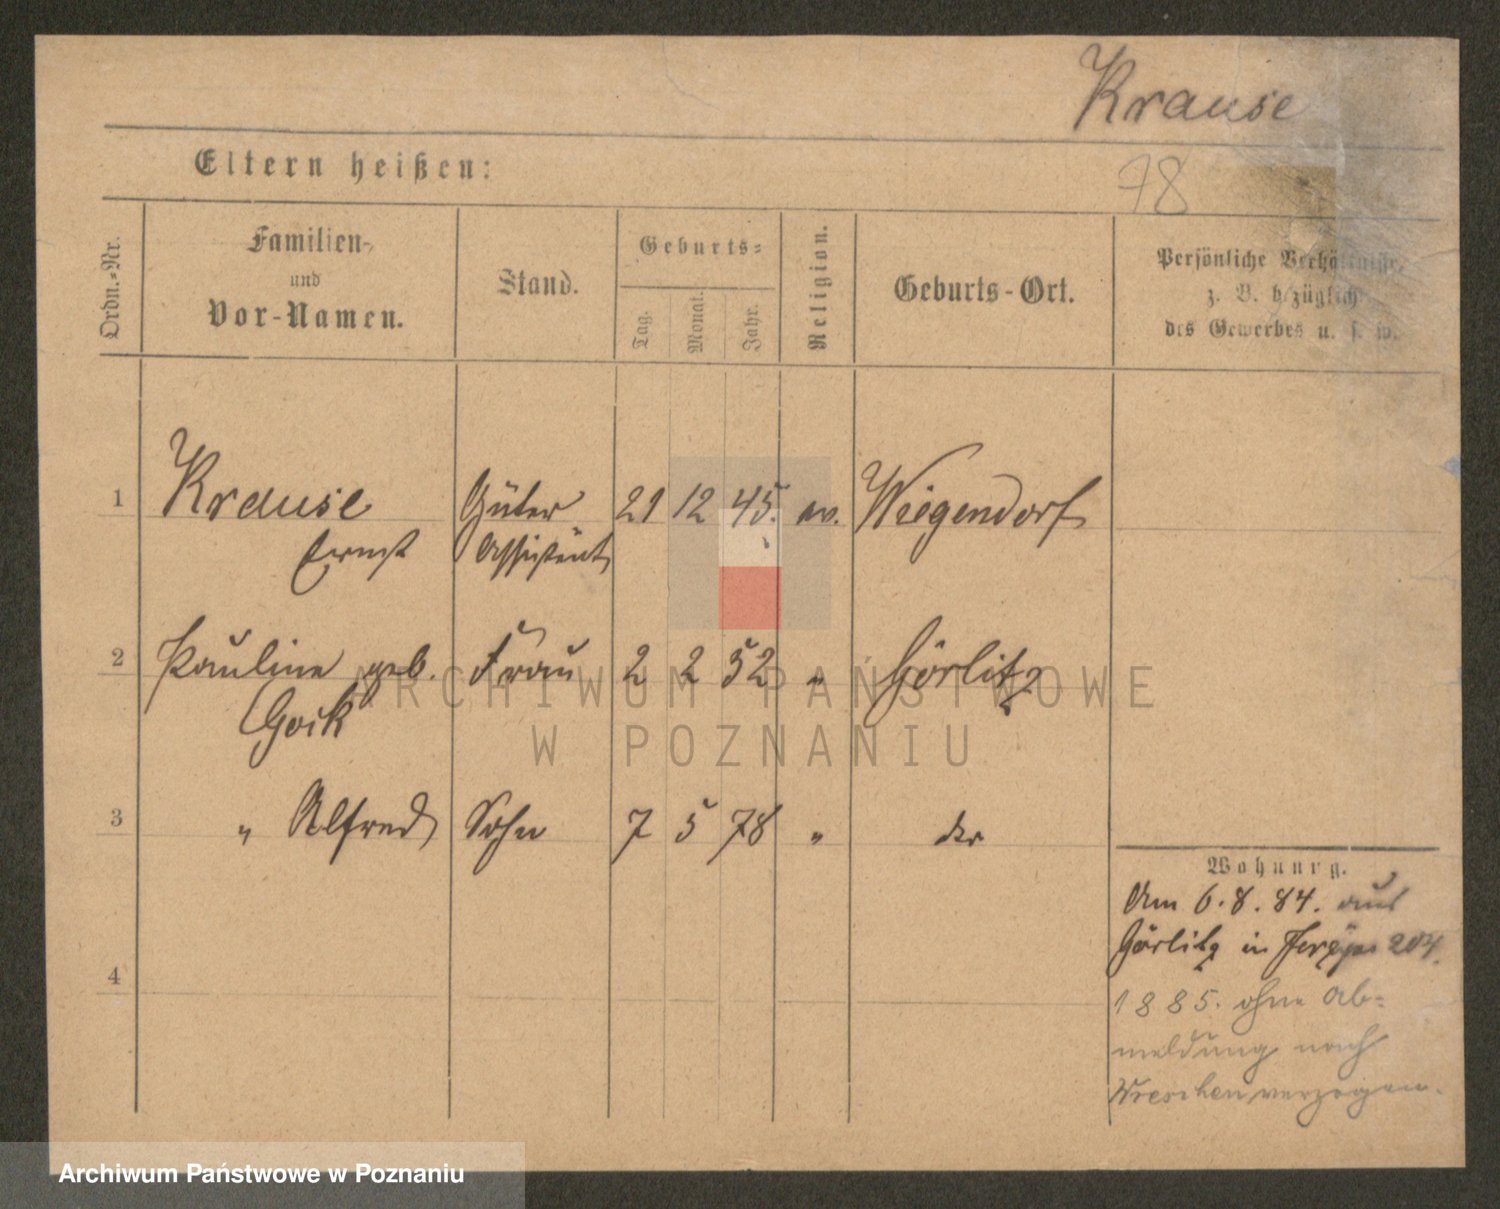 Krause
Eltern heißen:
78
Ordn.-Nr.
Familien-
und
Vor-Namen.
Stand.
Geburts-
Tag.
Monat.
Jahr.
Religion.
Geburts-Ort.
Persönliche Verhältnisse,
z. B. bezüglich
des Gewerbes u. s. w.
1 Krause Güter 21 12 45. ev. Wiegendorf
Ernst Assistent
2 Pauline geb. Frau 2 2 52 " Görlitz
Goik
3 " Alfred Sohn 7 5 78 "
Wohnung.
Am 6.8.84. aus
Görlitz in 204.
4
1885. ohne Ab-
meldung nach
Wreschen verzogen.
ARCHIWUM PAŃSTWOWE
W POZNANIU
Archiwum Państwowe w Poznaniu